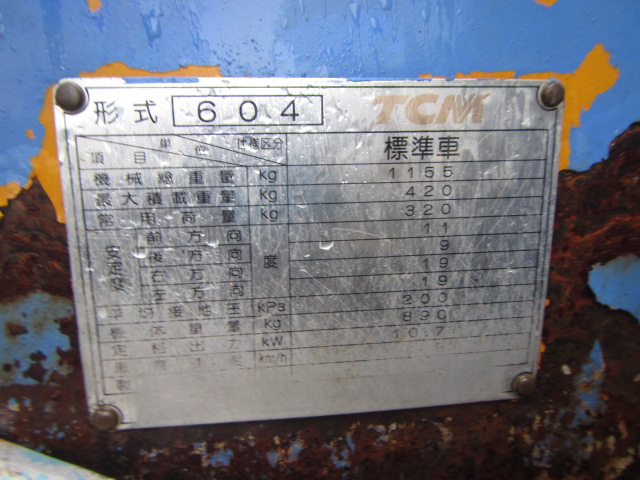 形式 604 TCM
項目 単位 仕様区分 標準車
機械総重量 kg 1155
最大積載重量 kg 420
常用荷重 kg 320
安定度 前方向 度 11
後方向 9
右方向 19
左方向 19
平均接地圧 kPa 200
車体重量 Kg 890
定格出力 kW 10.7
最高速度 km/h